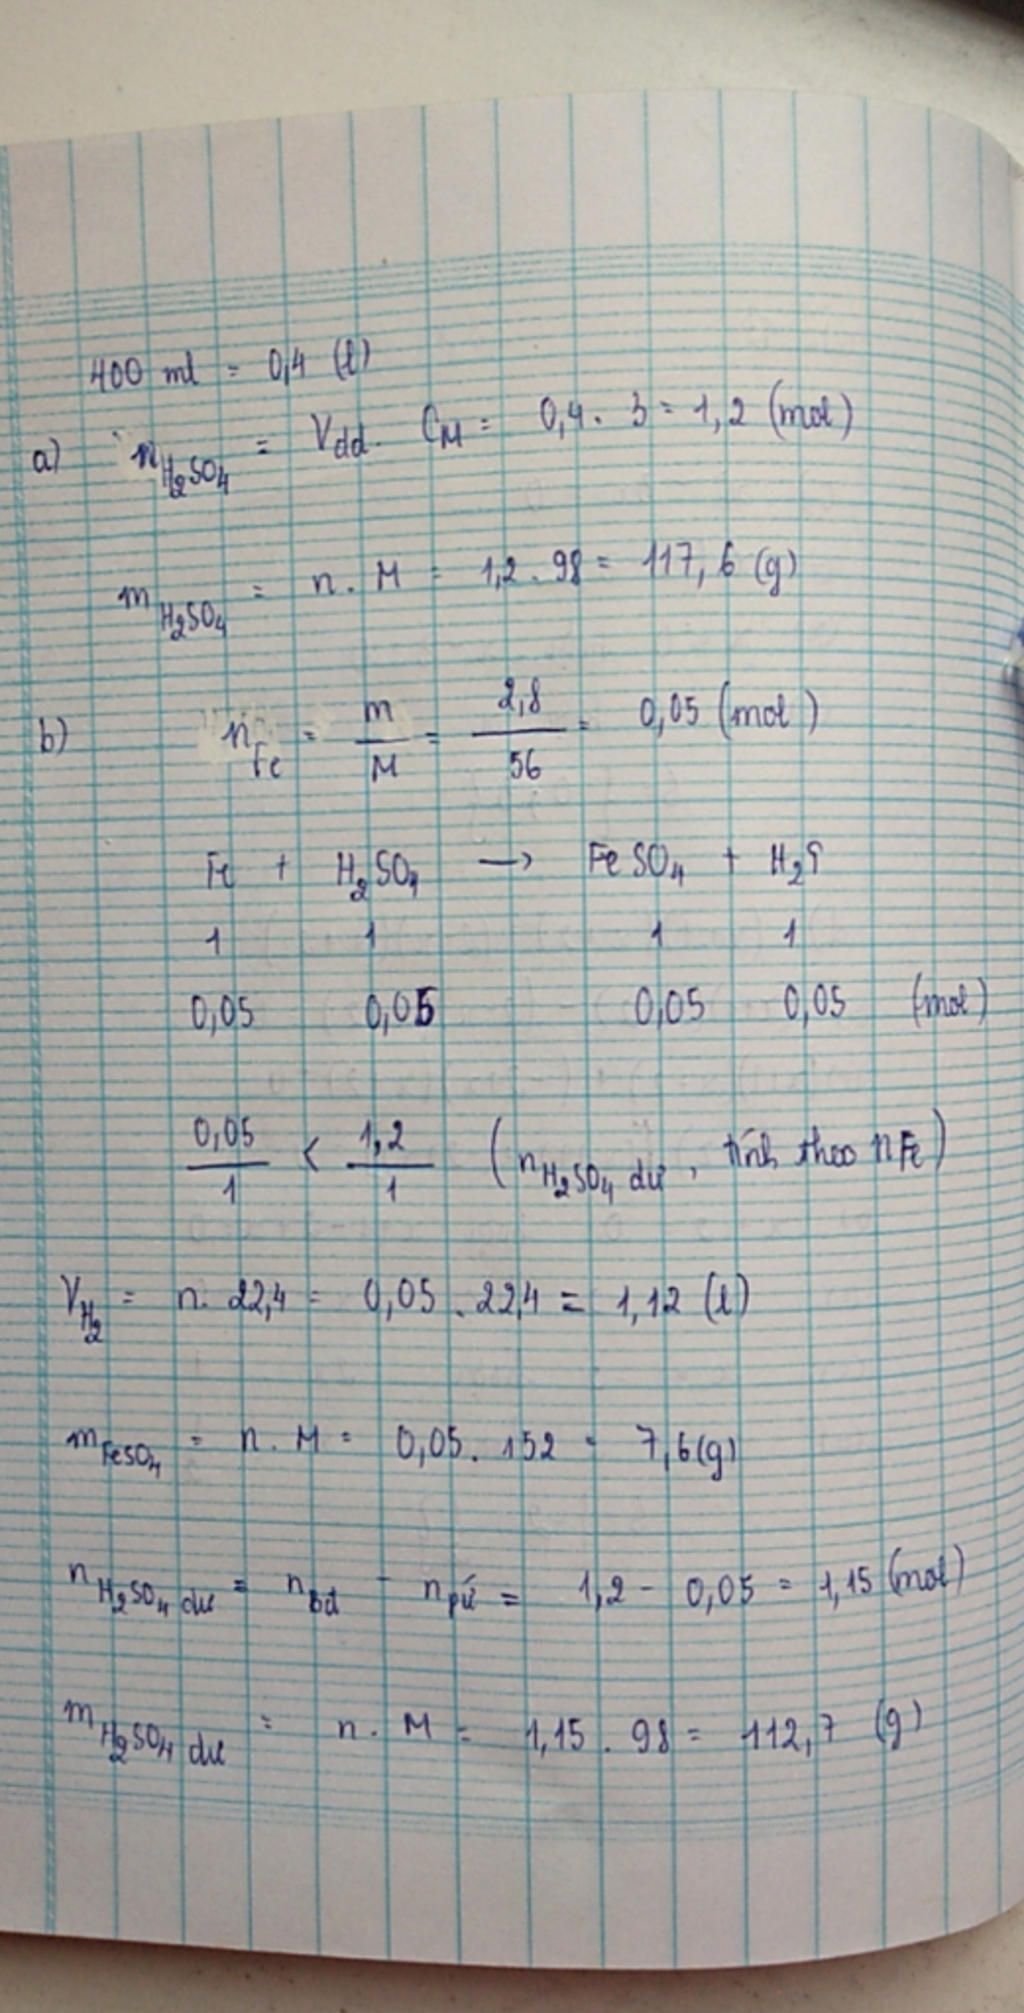 400 ml = 0,4 (l)
a) n H₂SO₄ = Vdd. CM = 0,4. 3 = 1,2 (mol)
m H₂SO₄ = n. M = 1,2. 98 = 117,6 (g)
b) n Fe = m/M = 2,8/56 = 0,05 (mol)
Fe + H₂SO₄ → FeSO₄ + H₂↑
1 1 1 1
0,05 0,05 0,05 0,05 (mol)
0,05/1 < 1,2/1 (nH₂SO₄ dư, tính theo nFe)
VH₂ = n. 22,4 = 0,05. 22,4 = 1,12 (l)
mFeSO₄ = n. M = 0,05. 152 = 7,6 (g)
nH₂SO₄ dư = nbđ - npứ = 1,2 - 0,05 = 1,15 (mol)
mH₂SO₄ dư = n. M = 1,15. 98 = 112,7 (g)